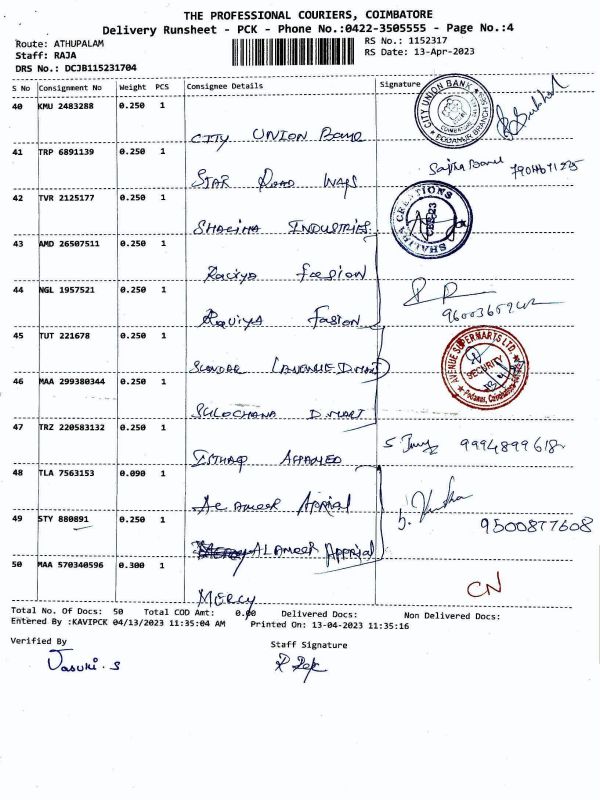 THE PROFESSIONAL COURIERS, COIMBATORE
Delivery Runsheet - PCK - Phone No.:0422-3505555 - Page No.:4
Route: ATHUPALAM RS No.: 1152317
Staff: RAJA RS Date: 13-Apr-2023
DRS No.: DCJB115231704
S No Consignment No Weight PCS Consignee Details Signature
40 KMU 2483288 0.250 1
CITY UNION BANK
CITY UNION BANK
PODANUR BRANCH
41 TRP 6891139 0.250 1
STAR ROAD WAYS
42 TVR 2125177 0.250 1
SHALIHA INDUSTRIES
CREATIONS
43 AMD 26507511 0.250 1
Raviya Fasion
44 NGL 1957521 0.250 1
RAVIYA Fasion
45 TUT 221678 0.250 1
(AVENUE D.MART)
AVENUE SUPERMARTS LTD.
SECURITY
Podanur, Coimbatore
46 MAA 299380344 0.250 1
SULOCHANA D.MART
47 TRZ 220583132 0.250 1
9994899618
48 TLA 7563153 0.090 1
AL Ameer Apprial
49 STY 880891 0.250 1
AL Ameer Apprial
9500877608
50 MAA 570340596 0.300 1
MERCY
CN
Total No. Of Docs: 50 Total COD Amt: 0.00 Delivered Docs: Non Delivered Docs:
Entered By :KAVIPCK 04/13/2023 11:35:04 AM Printed On: 13-04-2023 11:35:16
Verified By Staff Signature
Vasuki.S